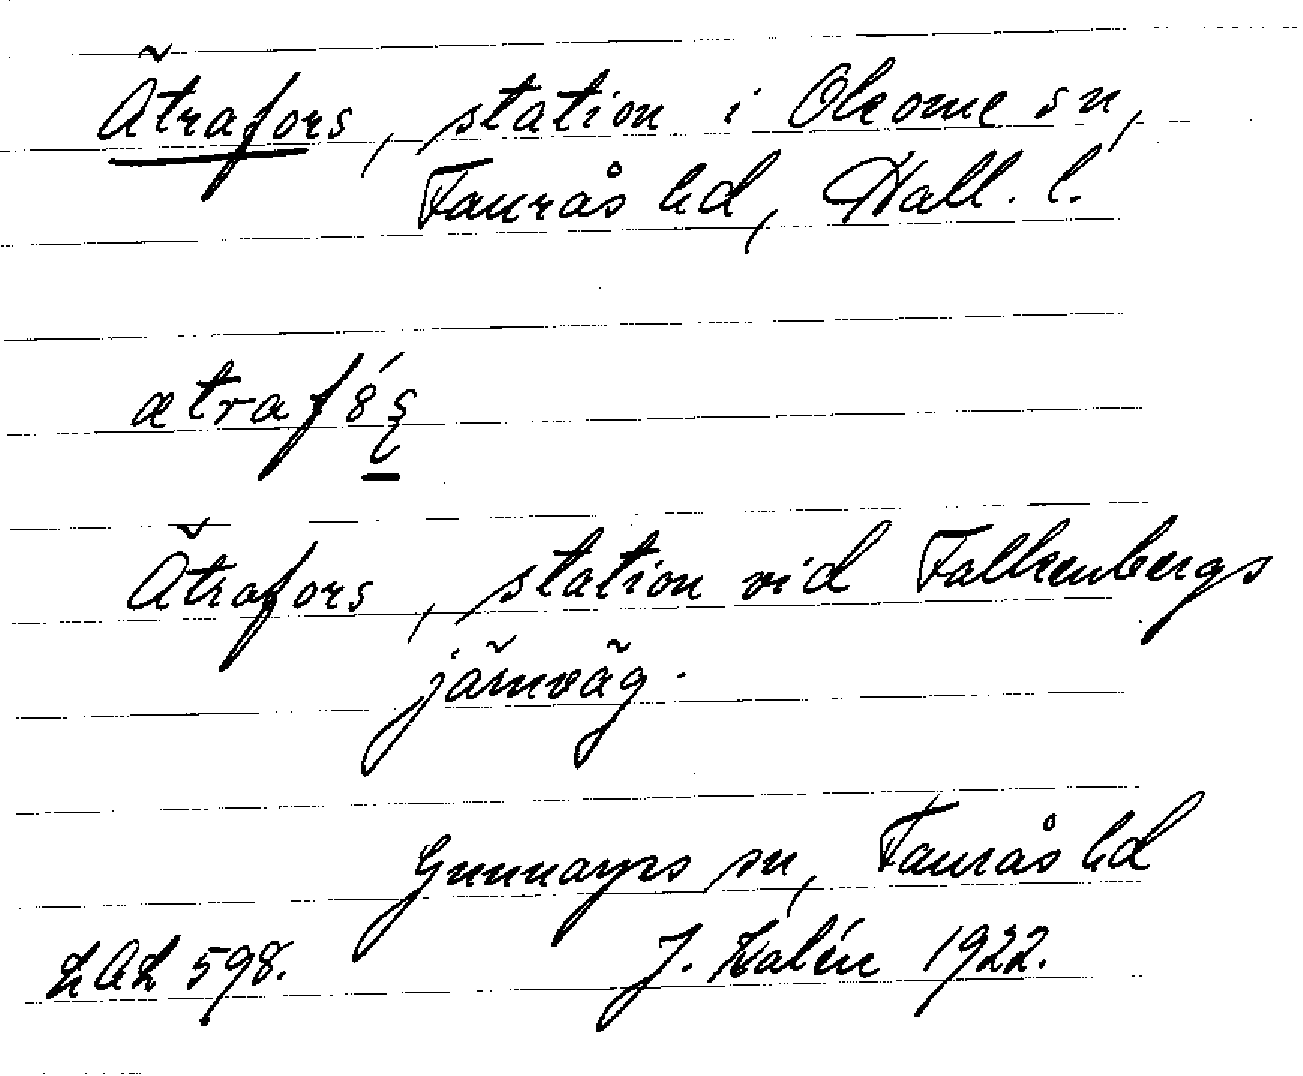 Ätrafors, station i Okome sn,
Faurås hd, Hall. l.
ätrafors, station vid Falkenbergs
järnväg.
Gunnarps sn, Faurås hd
LAL 598. J. Kalén 1922.